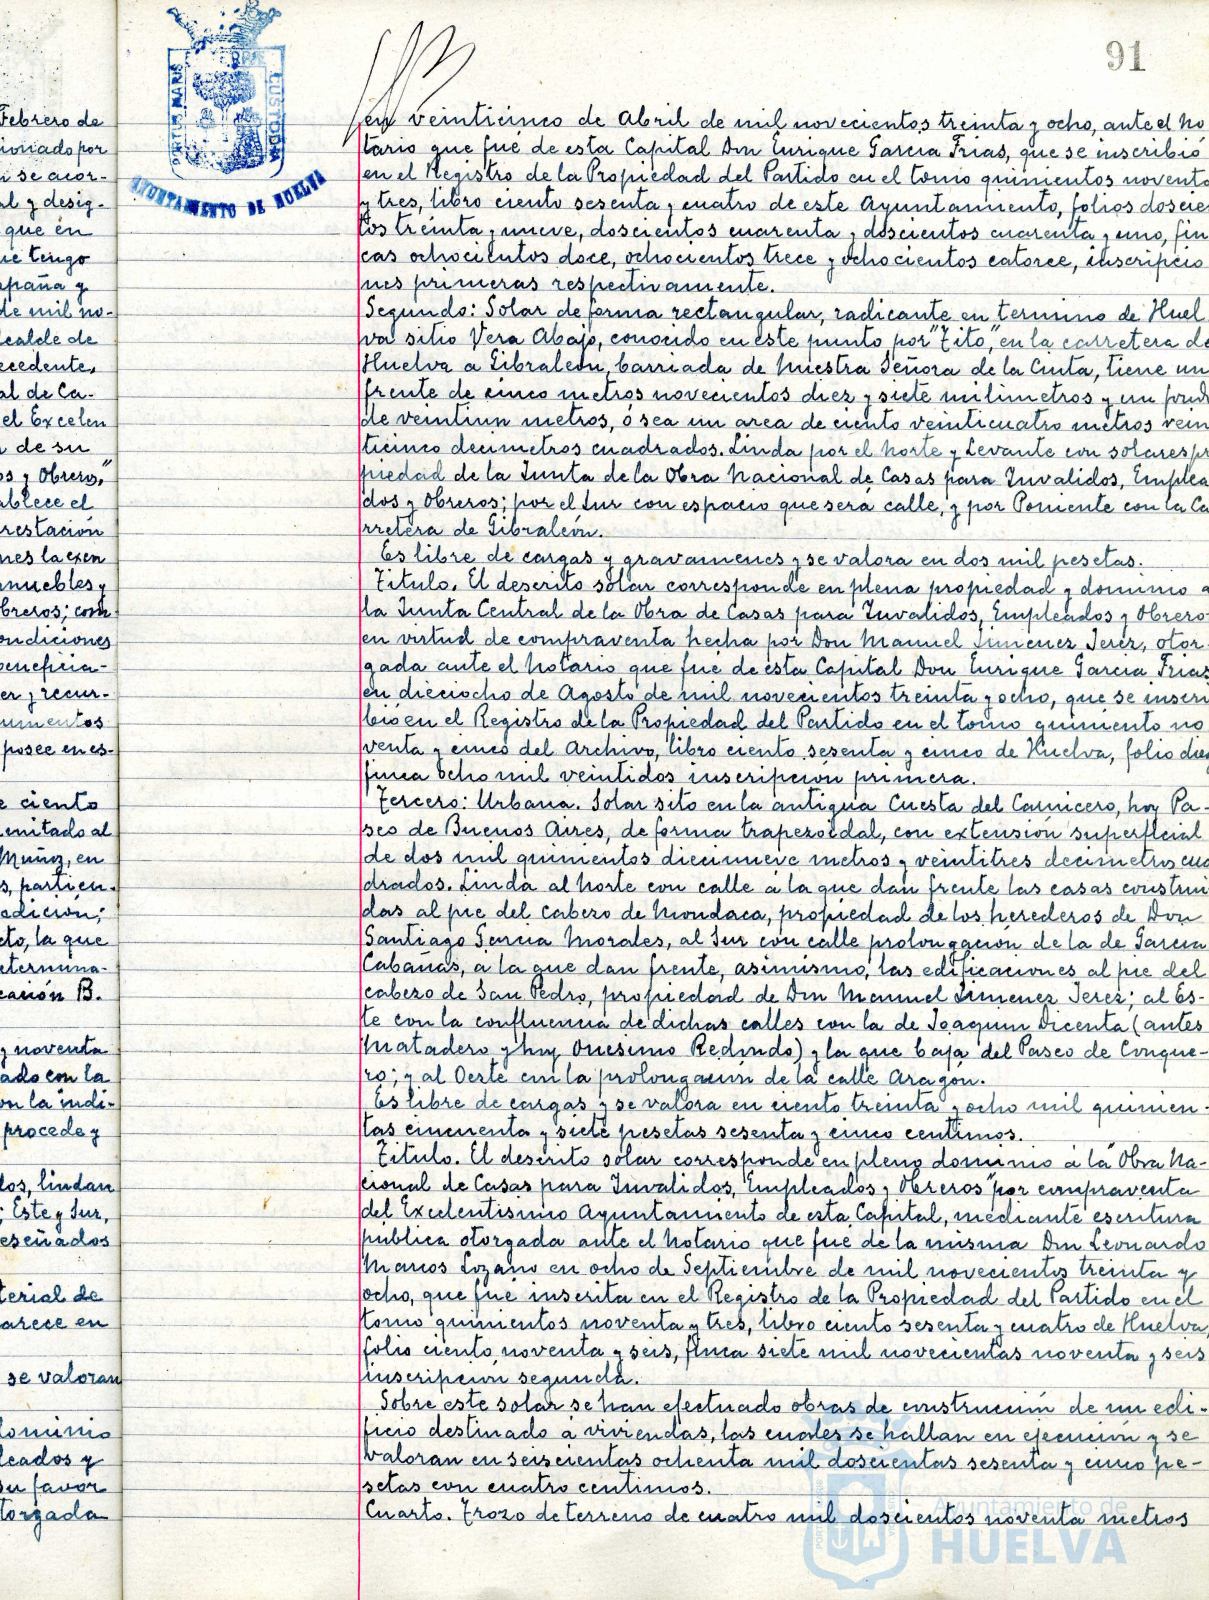 91
PORTUS MARIS
CUSTODIA
AYUNTAMIENTO DE HUELVA
Febrero de
ionado por
se acor-
al y desig-
que en
ue tengo
spaña y
de mil no-
lcalde de
ecedente,
al de Ca-
el Excelen
de su
os y Obreros,"
ablece el
restación
nes la exen
nmuebles y
breros; com
ondiciones
beneficia-
er y recur-
umentos
posee en es-
e ciento
mitado al
Muñoz, en
s, partien-
edición;
cto, la que
etermina-
cación B.
y noventa
ado con la
on la indi-
procede y
dos, lindan
; Este y Sur,
eseñados
terial de
arece en
se valoran
dominio
leados y
su favor
torgada
en veinticinco de Abril de mil novecientos treinta y ocho, ante el No
tario que fué de esta Capital Don Enrique Garcia Frias, que se inscribió
en el Registro de la Propiedad del Partido en el tomo quinientos noventa
y tres, libro ciento sesenta y cuatro de este Ayuntamiento, folios doscien
tos treinta y nueve, doscientos cuarenta y doscientos cuarenta y uno, fin
cas ochocientos doce, ochocientos trece y ochocientos catorce, inscripcio
nes primeras respectivamente.
Segundo: Solar de forma rectangular, radicante en termino de Huel
va sitio Vera Abajo, conocido en este punto por "Tito", en la carretera de
Huelva a Gibraleón, barriada de Nuestra Señora de la Cinta, tiene un
frente de cinco metros novecientos diez y siete milimetros y un fondo
de veintiun metros, ó sea un area de ciento veinticuatro metros vein
ticinco decimetros cuadrados. Linda por el Norte y Levante con solares pr
piedad de la Junta de la Obra Nacional de Casas para Invalidos, Emplea
dos y Obreros; por el Sur con espacio que será calle, y por Poniente con la Ca
rretera de Gibraleón.
Es libre de cargas y gravamenes y se valora en dos mil pesetas.
Titulo. El descrito solar corresponde en plena propiedad y dominio a
la Junta Central de la Obra de Casas para Invalidos, Empleados y Obrero
en virtud de compraventa hecha por Don Manuel Jimenez Jerez, otor-
gada ante el Notario que fue de esta Capital Don Enrique Garcia Frias
en dieciocho de Agosto de mil novecientos treinta y ocho, que se inscri
bió en el Registro de la Propiedad del Partido en el tomo quiniento no
venta y cinco del Archivo, libro ciento sesenta y cinco de Huelva, folio diez
finca ocho mil veintidos inscripción primera.
Tercero: Urbana. Solar sito en la antigua Cuesta del Carnicero, hoy Pa-
seo de Buenos Aires, de forma trapezoidal, con extensión superficial
de dos mil quinientos diecinueve metros y veintitres decimetros cua
drados. Linda al Norte con calle a la que dan frente las casas construi
das al pie del Cabezo de Mondaca, propiedad de los herederos de Don
Santiago Garcia Morales, al Sur con calle prolongación de la de Garcia
Cabañas, a la que dan frente, asimismo, las edificaciones al pie del
cabezo de San Pedro, propiedad de Don Manuel Jimenez Jerez; al Es-
te con la confluencia de dichas calles con la de Joaquin Dicenta (antes
Matadero y hoy Onesimo Redondo) y la que baja del Paseo de Conque-
ro; y al Oeste con la prolongación de la calle Aragón.
Es libre de cargas y se valora en ciento treinta y ocho mil quinien-
tas cincuenta y siete pesetas sesenta y cinco centimos.
Titulo. El descrito solar corresponde en pleno dominio a la "Obra Na-
cional de Casas para Invalidos, Empleados y Obreros" por compraventa
del Excelentisimo Ayuntamiento de esta Capital, mediante escritura
publica otorgada ante el Notario que fué de la misma Don Leonardo
Manos Lozano en ocho de Septiembre de mil novecientos treinta y
ocho, que fué inscrita en el Registro de la Propiedad del Partido en el
tomo quinientos noventa y tres, libro ciento sesenta y cuatro de Huelva,
folio ciento noventa y seis, finca siete mil novecientas noventa y seis
inscripción segunda.
Sobre este solar se han efectuado obras de construcción de un edi-
ficio destinado á viviendas, las cuales se hallan en ejecución y se
valoran en seiscientas ochenta mil doscientas sesenta y cinco pe-
setas con cuatro centimos.
Cuarto. Trozo de terreno de cuatro mil doscientos noventa metros
Ayuntamiento de
HUELVA